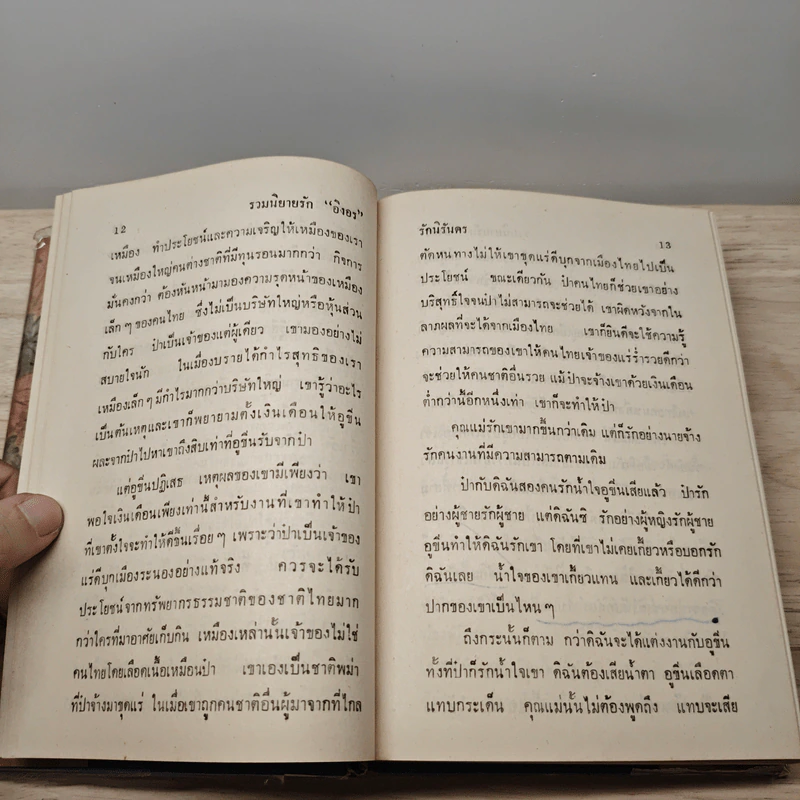 รวมนิยายรัก “อิงอร”
12
เหมือง ทำประโยชน์และความเจริญให้เหมืองของเรา
จนเหมืองใหญ่คนต่างชาติที่มีทุนรอนมากกว่า กิจการ
มั่นคงกว่า ต้องหันหน้ามามองความรุดหน้าของเหมือง
เล็กๆ ของคนไทย ซึ่งไม่เป็นบริษัทใหญ่หรือหุ้นส่วน
กับใคร ป๋าเป็นเจ้าของแต่ผู้เดียว เขามองอย่างไม่
สบายใจนัก ในเมื่อบรายได้กำไรสุทธิของเรา
เหมืองเล็กๆ มีกำไรมากกว่าบริษัทใหญ่ เขารู้ว่าอะไร
เป็นต้นเหตุและเขาก็พยายามตั้งเงินเดือนให้อูขิ่น
ผละจากป๋าไปหาเขาถึงสิบเท่าที่อูขิ่นรับจากป๋า
แต่อูขิ่นปฏิเสธ เหตุผลของเขามีเพียงว่า เขา
พอใจเงินเดือนเพียงเท่านี้สำหรับงานที่เขาทำให้ป๋า
ที่เขาตั้งใจจะทำให้ดีขึ้นเรื่อยๆ เพราะว่าป๋าเป็นเจ้าของ
แร่ดีบุกเมืองระนองอย่างแท้จริง ควรจะได้รับ
ประโยชน์จากทรัพยากรธรรมชาติของชาติไทยมาก
กว่าใครที่มาอาศัยเก็บกิน เหมืองเหล่านั้นเจ้าของไม่ใช่
คนไทยโดยเลือดเนื้อเหมือนป๋า เขาเองเป็นชาติพม่า
ที่ป๋าจ้างมาขุดแร่ ในเมื่อเขาถูกคนชาติอื่นผู้มาจากที่ไกล
รักนิรันดร
13
ตัดหนทางไม่ให้เขาขุดแร่ดีบุกจากเมืองไทยไปเป็น
ประโยชน์ ขณะเดียวกัน ป๋าคนไทยก็ช่วยเขาอย่าง
บริสุทธิ์ใจจนป๋าไม่สามารถจะช่วยได้ เขาผิดหวังจากใน
ลาภผลที่จะได้จากเมืองไทย เขาก็ยินดีจะใช้ความรู้
ความสามารถของเขาให้คนไทยเจ้าของแร่ร่ำรวยดีกว่า
จะช่วยให้คนชาติอื่นรวย แม้ป๋าจะจ้างเขาด้วยเงินเดือน
ต่ำกว่านี้อีกหนึ่งเท่า เขาก็จะทำให้ป๋า
คุณแม่รักเขามากขึ้นกว่าเดิม แต่ก็รักอย่างนายจ้าง
รักคนงานที่มีความสามารถตามเดิม
ป๋ากับดิฉันสองคนรักน้ำใจอูขิ่นเสียแล้ว ป๋ารัก
อย่างผู้ชายรักผู้ชาย แต่ดิฉันซิ รักอย่างผู้หญิงรักผู้ชาย
อูขิ่นทำให้ดิฉันรักเขา โดยที่เขาไม่เคยเกี้ยวหรือบอกรัก
ดิฉันเลย น้ำใจของเขาเกี้ยวแทน และเกี้ยวได้ดีกว่า
ปากของเขาเป็นไหนๆ
ถึงกระนั้นก็ตาม กว่าดิฉันจะได้แต่งงานกับอูขิ่น
ทั้งที่ป๋าก็รักน้ำใจเขา ดิฉันต้องเสียน้ำตา อูขิ่นเลือดตา
แทบกระเด็น คุณแม่นั้นไม่ต้องพูดถึง แทบจะเสีย